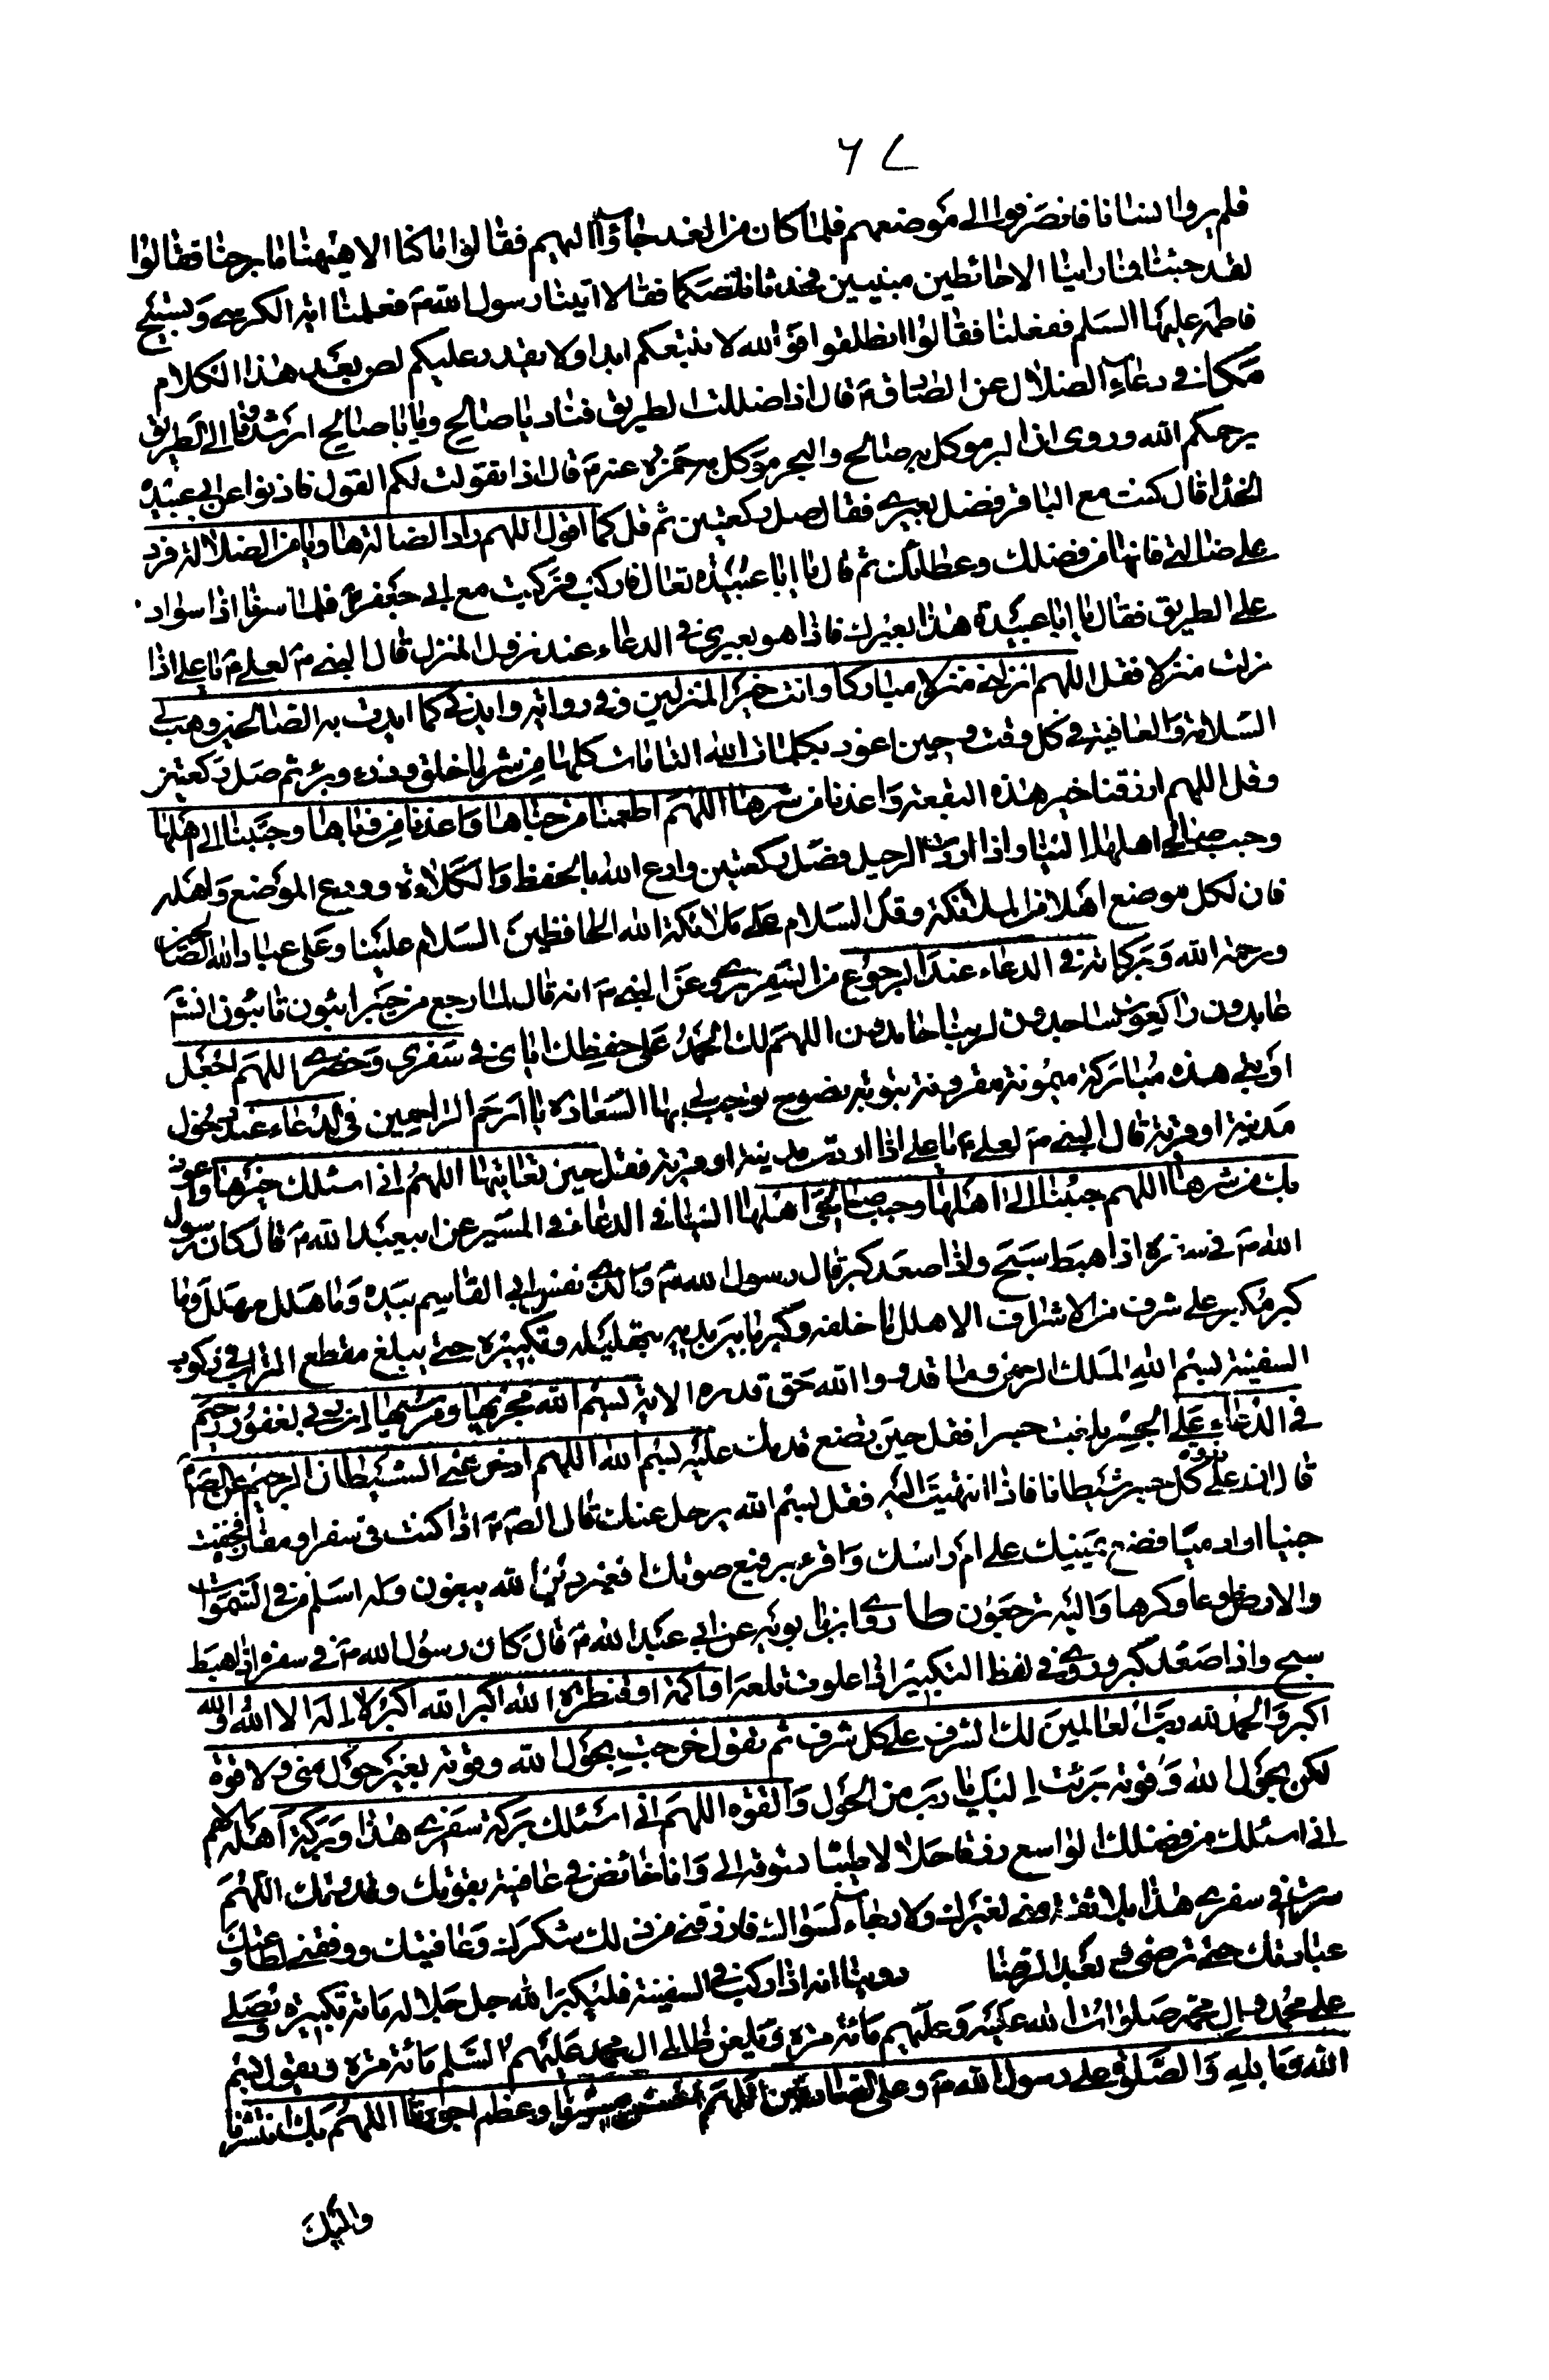 ٦٧
فلم يروا انسانا فانصرفوا الى موضعهم فلما كان من الغد جاؤا اليهم فقالوا ما كنا الا هيهنا ما برحنا فقالوا
لقد جئنا فما راينا الا حائطين مبنيين فحدثانا قصتكما فقالا اتينا رسول الله ص فعلمنا اية الكرسى وتسبيح
فاطمة عليها السلم ففعلنا فقالوا انطلقوا فوالله لا نتبعكم ابدا ولا يقدر عليكم لص بعد هذا الكلام
مكا فى دعاء الضلال عن الصادق ع قال اذا ضللت الطريق فناد يا صالح ويا با صالح ارشدونا الى الطريق
يرحمكم الله وروى ان البر موكل به صالح والبحر موكل به حمزة عنه ع قال اذا تغولت لكم الغول فاذنوا عن ابى عبيدة
الحذا قال كنت مع الباقر فضل بعيرى فقال صل ركعتين ثم قل كما اقول اللهم راد الضالة هاديا من الضلالة فرد
على ضالتى فانها من فضلك وعطائك ثم قال يا ابا عبيدة تعال فاركب فركبت مع ابى جعفر ع فلما سرنا اذا سواد
على الطريق فقال يا ابا عبيدة هذا بعيرك فاذا هو بعيرى فى الدعاء عند نزول المنزل قال النبى ص لعلى ع يا على اذا
نزلت منزلا فقل اللهم انزلنى منزلا مباركا وانت خير المنزلين وفى رواية وايدنى كما ايدت به الصالحين وهب لى
السلامة والعافية فى كل وقت وحين اعوذ بكلمات الله التامات كلها من شر ما خلق وذرء وبرء ثم صل ركعتين
وقل اللهم ارزقنا خير هذه البقعة واعذنا من شرها اللهم اطعمنا من جناها واعذنا من وباها وحببنا الى اهلها
وحبب صالحى اهلها الينا واذا اردت الرحيل فصل ركعتين وادع الله بالحفظ والكلاءة وودع الموضع واهله
فان لكل موضع اهلا من الملائكة وقل السلام على ملائكة الله الحافظين السلام علينا وعلى عباد الله الصالحين
ورحمة الله وبركاته فى الدعاء عند الرجوع من السفر روى عن النبى ص انه قال لما رجع من خيبر ائبون تائبون انشا
عابدون راكعون ساجدون لربنا حامدون اللهم لك الحمد على حفظك اياى فى سفرى وحضرى اللهم اجعل
اوبتى هذه مباركة ميمونة مقرونة بتوبة نصوح توجب لى بها السعادة يا ارحم الراحمين فى الدعاء عند دخول
مدينة او قرية قال النبى ص لعلى ع يا على اذا اردت مدينة او قرية فقل حين تعاينها اللهم انى اسئلك خيرها واعوذ
بك من شرها اللهم حببنا الى اهلها وحبب صالحى اهلها الينا فى الدعاء فى المسير عن ابيعبد الله ع قال كان رسول
الله ص فى سفره اذا هبط سبح واذا صعد كبر قال رسول الله ص والذى نفس ابى القاسم بيده ما هلل مهلل وما
كبر مكبر على شرف من الاشراف الا هلل ما خلفه وكبر ما بين يديه بتهليله وتكبيره حتى يبلغ مقطع التراب فى ركوب
السفينة بسم الله الملك الرحمن وما قدروا الله حق قدره الاية بسم الله مجريها ومرسيها ان ربى لغفور رحيم
فى الدعاء على الجسر بلغت جسرا فقل حين تضع قدمك عليه بسم الله اللهم ادحر عنى الشيطان الرجيم عن الص ع
قال ان على ذروة كل جسر شيطانا فاذا انتهيت اليه فقل بسم الله يرحل عنك قال الص ع اذا كنت فى سفر او مفازة فخفت
جنيا او ادميا فضع يمينك على ام راسك واقرء برفيع صوتك افغير دين الله يبغون وله اسلم من فى السموات
والارض طوعا وكرها واليه ترجعون طا روى ابن بابويه عن ابى عبد الله ع قال كان رسول الله ص فى سفره اذا هبط
سبح واذا صعد كبر وروى فى لفظ التكبير اذا علوت تلعة او اكمة او قنطرة الله اكبر الله اكبر لا اله الا الله والله
اكبر والحمد لله رب العالمين لك الشرف على كل شرف ثم تقول خرجت بحول الله وقوته بغير حول منى ولا قوة
لكن بحول الله وقوته برئت اليك يا رب من الحول والقوة اللهم انى اسئلك بركة سفرى هذا وبركة اهله اللهم
انى اسئلك من فضلك الواسع رزقا حلالا طيبا تسوقه الى وانا خائض فى عافية بقوتك وقدرتك اللهم
سرت فى سفرى هذا بلا ثقة منى لغيرك ولا رجاء لسواك فارزقنى فى ذلك شكرك وعافيتك ووفقنى لطاعتك و
عبادتك حتى ترضى وبعد الرضا روينا انه اذا ركب فى السفينة فليكبر الله جل جلاله مائة تكبيرة ويصلى
على محمد وال محمد صلوات الله عليه وعليهم مائة مرة ويلعن ظالمى ال محمد عليهم السلم مائة مرة ويقول بسم
الله وبالله والصلوة على رسول الله ص وعلى الصادقين اللهم احسن مسيرنا وعظم اجورنا اللهم بك انتشرنا
واليك